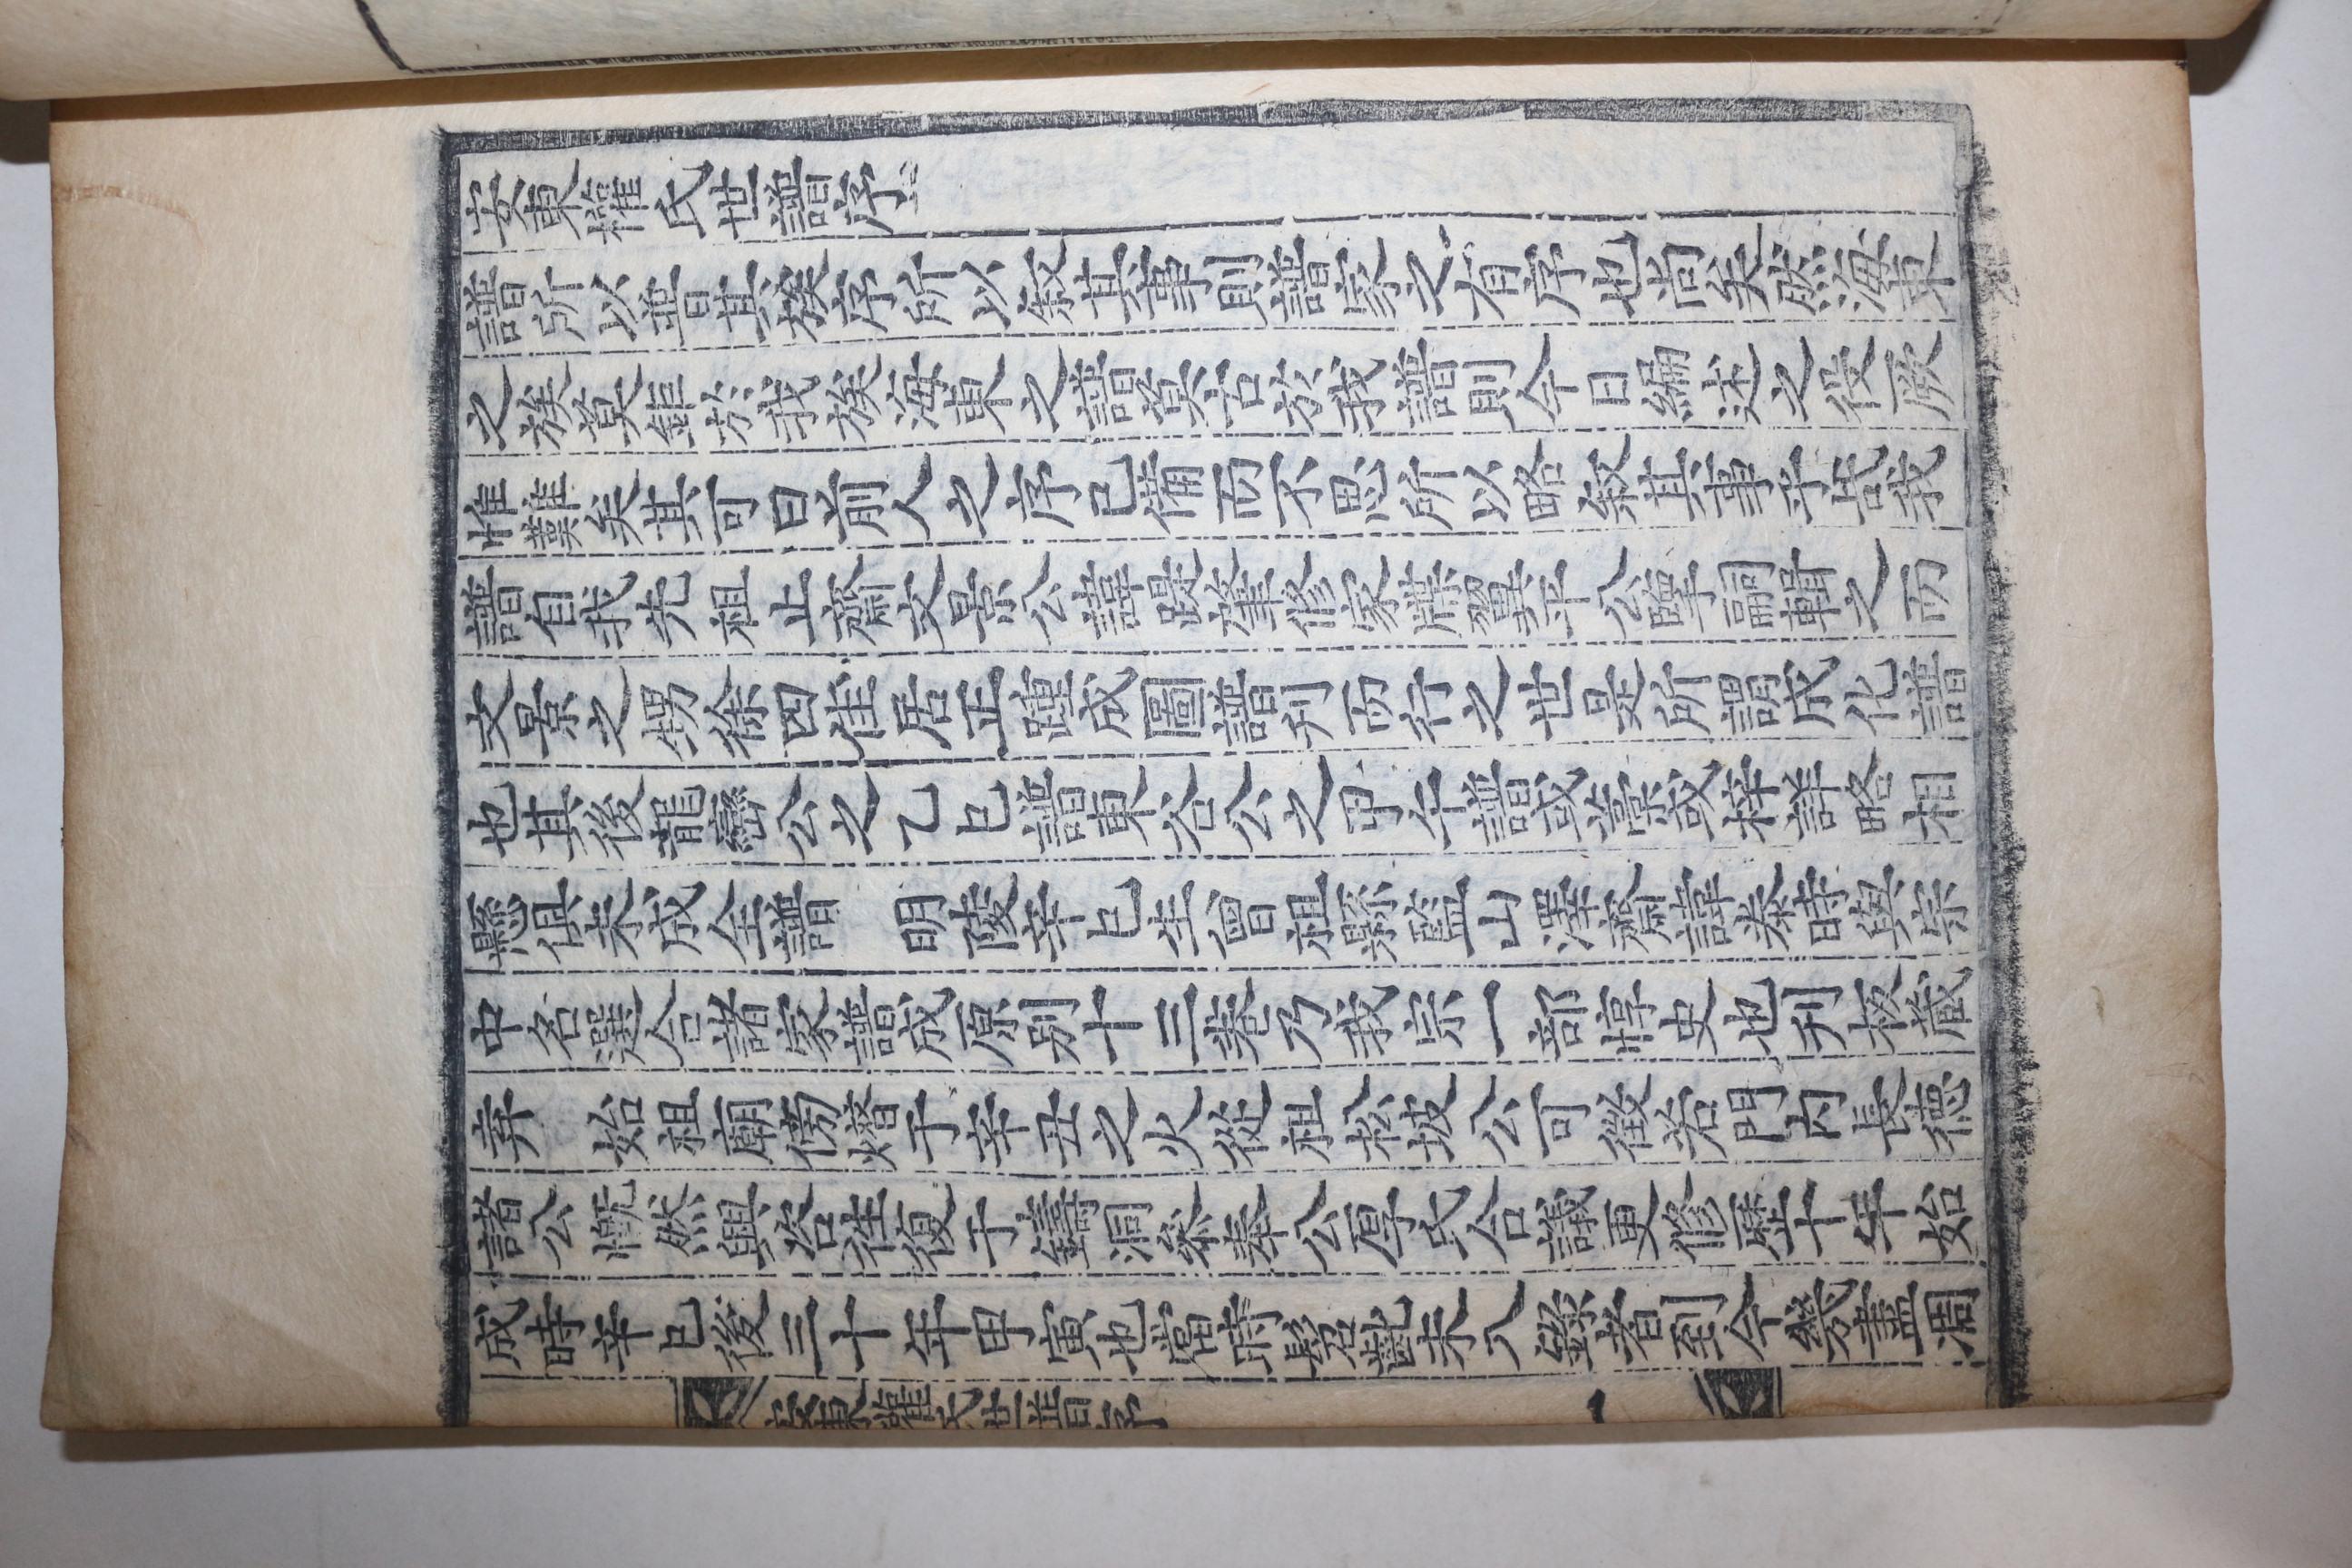 安東權氏世譜序
譜所以譜其族序所以敍其事則譜家之有序也尙矣然海東
之族莫韙於我族海東之譜莫古於我譜則今日編送之役厥
惟艱矣其可曰前人之序已備而不思所以略敍其事乎昔我
譜自我先祖止齋文景公諱踶攷率修家牒翼平公擥嗣輯之而
文景之甥徐四佳居正踵成圖譜刊而行之世是所謂成化譜
也其後龍巒公之乙巳譜東谷公之甲午譜或藁或梓詳略相
懸俱未成全譜 明陵辛巳生曾祖縣監山澤齋諱泰時與宗
中名選合諸家譜成原別十三卷乃我宗一部惇史也刊板藏
弆 始祖廟傍燬于辛丑之火從祖松坡公可徵若門內長德
諸公慨然興咨往復于鑄洞參奉公厚氏合議更修歷十年始
成時辛巳後三十年甲寅也當時髫齔未入錄者到今幾盡凋
安東權氏世譜序 一